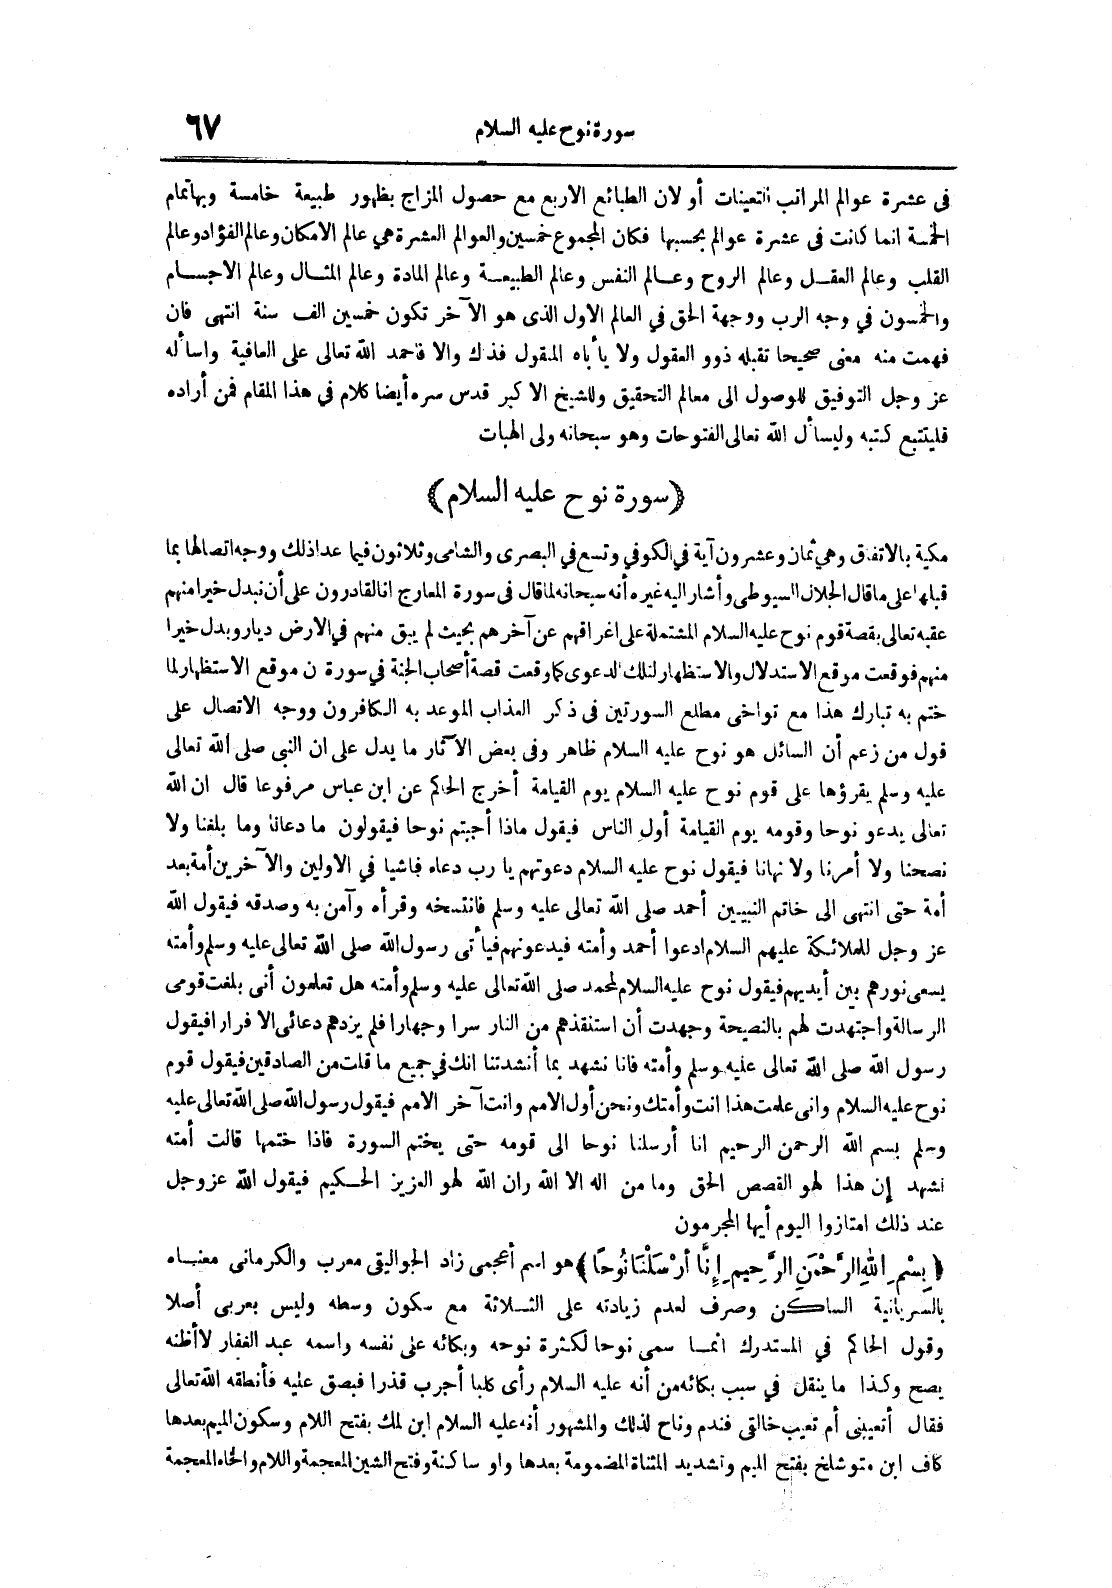 سورة نوح عليه السلام ٦٧
فى عشرة عوالم المراتب التعينات أو لان الطبائع الاربع مع حصول المزاج بظهور طبيعة خامسة وبهاتمام
الخمسة انما كانت فى عشرة عوالم بحسبها فكان المجموع خمسين والعوالم العشرة هي عالم الامكان وعالم الفؤاد وعالم
القلب وعالم العقل وعالم الروح وعالم النفس وعالم الطبيعة وعالم المادة وعالم المثال وعالم الاجسام
والخمسون في وجه الرب ووجهة الحق في العالم الاول الذى هو الآخر تكون خمسين الف سنة انتهى فان
فهمت منه معنى صحيحا تقبله ذوو العقول ولا يأباه المنقول فذك والا فاحمد الله تعالى على العافية واسأله
عز وجل التوفيق للوصول الى معالم التحقيق وللشيخ الاكبر قدس سره أيضا كلام في هذا المقام فمن أراده
فليتتبع كتبه وليسأل الله تعالى الفتوحات وهو سبحانه ولى الهبات
﴿سورة نوح عليه السلام﴾
مكية بالاتفاق وهي ثمان وعشرون آية في الكوفي وتسع في البصرى والشامى وثلاثون فيما عدا ذلك ووجه اتصالها بما
قبلها على ما قال الجلال السيوطى وأشار اليه غيره أنه سبحانه لما قال فى سورة المعارج انا لقادرون على أن نبدل خيرا منهم
عقبه تعالى بقصة قوم نوح عليه السلام المشتملة على اغراقهم عن آخرهم بحيث لم يبق منهم في الارض ديار وبدل خيرا
منهم فوقعت موقع الاستدلال والاستظهار لتلك الدعوى كما وقعت قصة أصحاب الجنة في سورة ن موقع الاستظهار لما
ختم به تبارك هذا مع تواخى مطلع السورتين فى ذكر العذاب الموعد به الكافرون ووجه الاتصال على
قول من زعم أن السائل هو نوح عليه السلام ظاهر وفى بعض الآثار ما يدل على ان النبى صلى الله تعالى
عليه وسلم يقرؤها على قوم نوح عليه السلام يوم القيامة أخرج الحاكم عن ابن عباس مرفوعا قال ان الله
تعالى يدعو نوحا وقومه يوم القيامة أول الناس فيقول ماذا أجبتم نوحا فيقولون ما دعانا وما بلغنا ولا
نصحنا ولا أمرنا ولا نهانا فيقول نوح عليه السلام دعوتهم يا رب دعاء فاشيا في الاولين والآخرين أمة بعد
أمة حتى انتهى الى خاتم النبيين أحمد صلى الله تعالى عليه وسلم فانتسخه وقرأه وآمن به وصدقه فيقول الله
عز وجل للملائكة عليهم السلام ادعوا أحمد وأمته فيدعونهم فيأتى رسول الله صلى الله تعالى عليه وسلم وأمته
يسعى نورهم بين أيديهم فيقول نوح عليه السلام لمحمد صلى الله تعالى عليه وسلم وأمته هل تعلمون أنى بلغت قومى
الرسالة واجتهدت لهم بالنصيحة وجهدت أن استنقذهم من النار سرا وجهارا فلم يزدهم دعائى الا فرارا فيقول
رسول الله صلى الله تعالى عليه وسلم وأمته فانا نشهد بما أنشدتنا انك في جميع ما قلت من الصادقين فيقول قوم
نوح عليه السلام وانى علمت هذا انت وأمتك ونحن أول الامم وانت آخر الامم فيقول رسول الله صلى الله تعالى عليه
وسلم بسم الله الرحمن الرحيم انا أرسلنا نوحا الى قومه حتى يختم السورة فاذا ختمها قالت أمته
نشهد إن هذا لهو القصص الحق وما من اله الا الله وان الله لهو العزيز الحكيم فيقول الله عز وجل
عند ذلك امتازوا اليوم أيها المجرمون
﴿ بِسْمِ اللهِ الرَّحْمَنِ الرَّحِيمِ إِنَّا أَرْسَلْنَا نُوحًا﴾ هو اسم أعجمى زاد الجواليقى معرب والكرمانى معناه
بالسريانية الساكن وصرف لعدم زيادته على الثلاثة مع سكون وسطه وليس بعربى أصلا
وقول الحاكم في المستدرك انما سمى نوحا لكثرة نوحه وبكائه على نفسه واسمه عبد الغفار لا أظنه
يصح وكذا ما ينقل في سبب بكائه من أنه عليه السلام رأى كلبا أجرب قذرا فبصق عليه فأنطقه الله تعالى
فقال أتعيبنى أم تعيب خالقى فندم وناح لذلك والمشهور أنه عليه السلام ابن لمك بفتح اللام وسكون الميم بعدها
كاف ابن متوشلخ بفتح الميم وتشديد المثناة المضمومة بعدها واو ساكنة وفتح الشين المعجمة واللام والخاء المعجمة